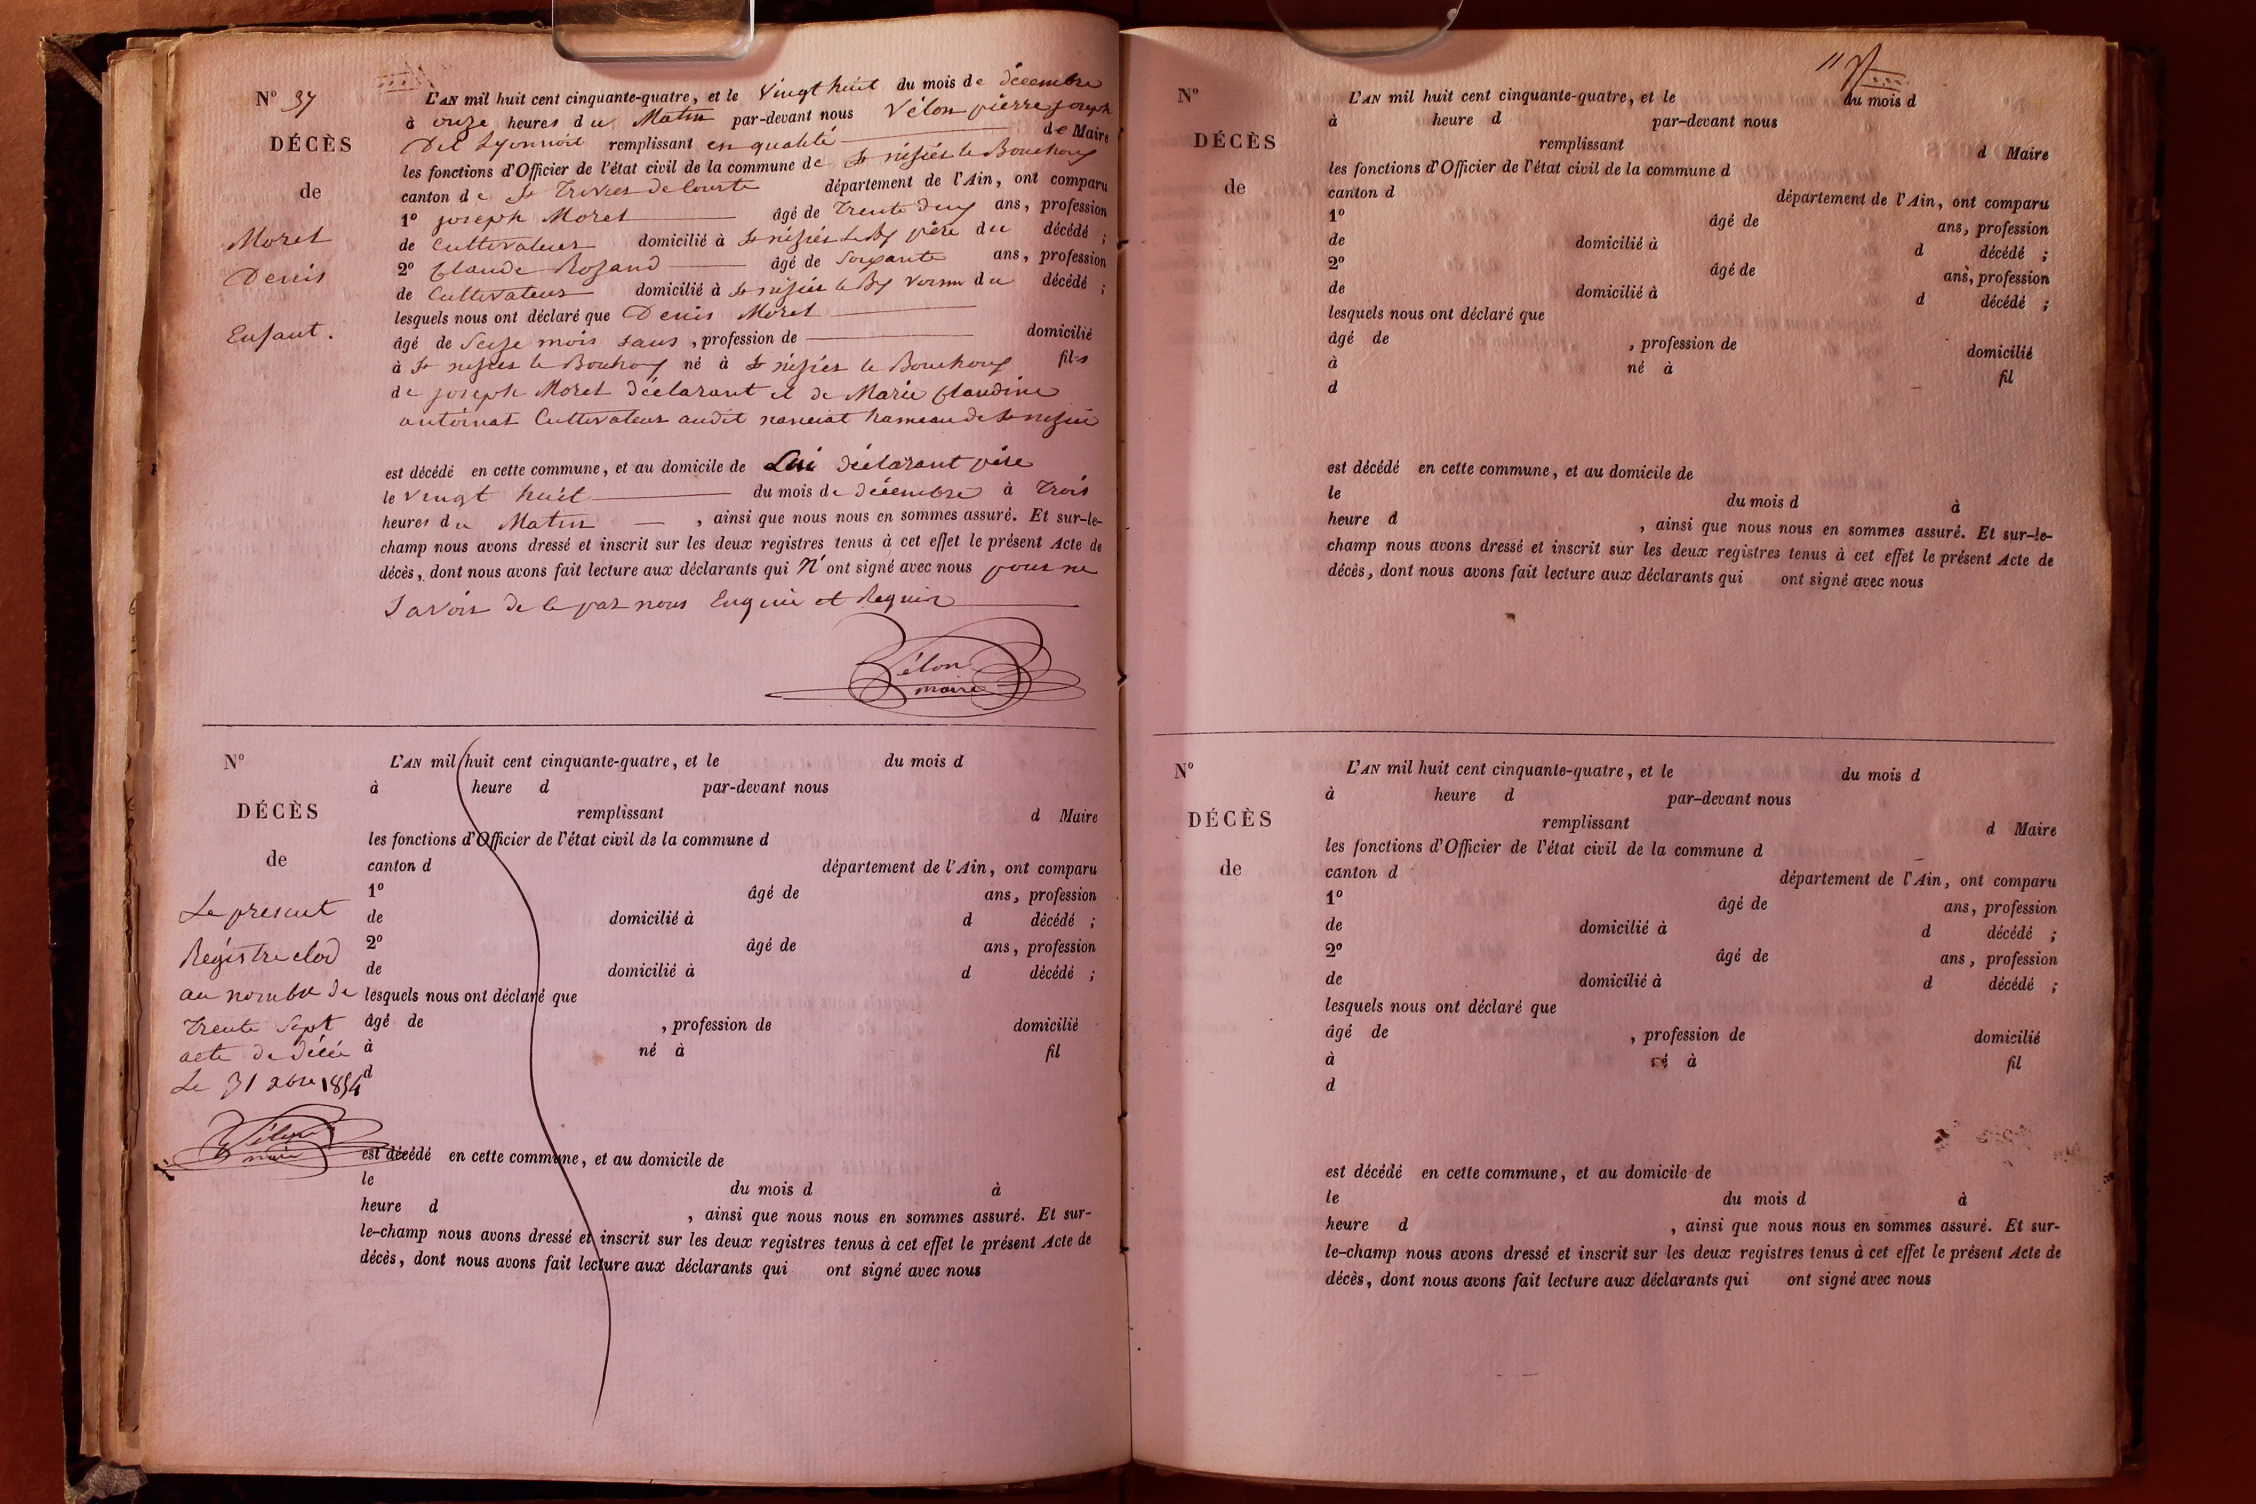 N° 37
DÉCÈS
de
Moret
Denis
Enfant.
L'AN mil huit cent cinquante-quatre, et le Vingt huit du mois de décembre
à onze heures du Matin par-devant nous Vélon pierre joseph
remplissant en qualité de Maire
les fonctions d'Officier de l'état civil de la commune de St nisiés le Bouchoux
canton de St Trivies de Courte département de l'Ain, ont comparu
1° joseph Moret âgé de Trente deux ans, profession
de Cultivateur domicilié à St nisiés le Bx père du décédé ;
2° Claude Rozand âgé de Soixante ans, profession
de Cultivateur domicilié à St nisier le Bx voisin du décédé ;
lesquels nous ont déclaré que Denis Moret
âgé de Seize mois , profession de domicilié
à St nisies le Bouchoux né à St nisies le Bouchoux fils
de joseph Moret déclarant et de Marie Claudine
antoinat Cultivateur audit hameau de St nisier
est décédé en cette commune, et au domicile de Lui déclarant père
le vingt huit du mois de décembre à Trois
heures du Matin , ainsi que nous nous en sommes assuré. Et sur-le-
champ nous avons dressé et inscrit sur les deux registres tenus à cet effet le présent Acte de
décès, dont nous avons fait lecture aux déclarants qui N' ont signé avec nous pour ne
Savoir de ce par nous Enquis et Requis
Vélon
maire
N°
DÉCÈS
de
Le present
Régistre clos
au nombre de
Trente Sept
acte de décès
Le 31 xbre 1854
Vélon
maire
L'AN mil huit cent cinquante-quatre, et le du mois d
à heure d par-devant nous
remplissant d Maire
les fonctions d'Officier de l'état civil de la commune d
canton d département de l'Ain, ont comparu
1° âgé de ans, profession
de domicilié à d décédé ;
2° âgé de ans, profession
de domicilié à d décédé ;
lesquels nous ont déclaré que
âgé de , profession de domicilié
à né à fil
d
est décédé en cette commune, et au domicile de
le du mois d à
heure d , ainsi que nous nous en sommes assuré. Et sur-
le-champ nous avons dressé et inscrit sur les deux registres tenus à cet effet le présent Acte de
décès, dont nous avons fait lecture aux déclarants qui ont signé avec nous
N°
DÉCÈS
de
L'AN mil huit cent cinquante-quatre, et le du mois d
à heure d par-devant nous
remplissant d Maire
les fonctions d'Officier de l'état civil de la commune d
canton d département de l'Ain, ont comparu
1° âgé de ans, profession
de domicilié à d décédé ;
2° âgé de ans, profession
de domicilié à d décédé ;
lesquels nous ont déclaré que
âgé de , profession de domicilié
à né à fil
d
est décédé en cette commune, et au domicile de
le du mois d à
heure d , ainsi que nous nous en sommes assuré. Et sur-le-
champ nous avons dressé et inscrit sur les deux registres tenus à cet effet le présent Acte de
décès, dont nous avons fait lecture aux déclarants qui ont signé avec nous
N°
DÉCÈS
de
L'AN mil huit cent cinquante-quatre, et le du mois d
à heure d par-devant nous
remplissant d Maire
les fonctions d'Officier de l'état civil de la commune d
canton d département de l'Ain, ont comparu
1° âgé de ans, profession
de domicilié à d décédé ;
2° âgé de ans, profession
de domicilié à d décédé ;
lesquels nous ont déclaré que
âgé de , profession de domicilié
à né à fil
d
est décédé en cette commune, et au domicile de
le du mois d à
heure d , ainsi que nous nous en sommes assuré. Et sur-
le-champ nous avons dressé et inscrit sur les deux registres tenus à cet effet le présent Acte de
décès, dont nous avons fait lecture aux déclarants qui ont signé avec nous